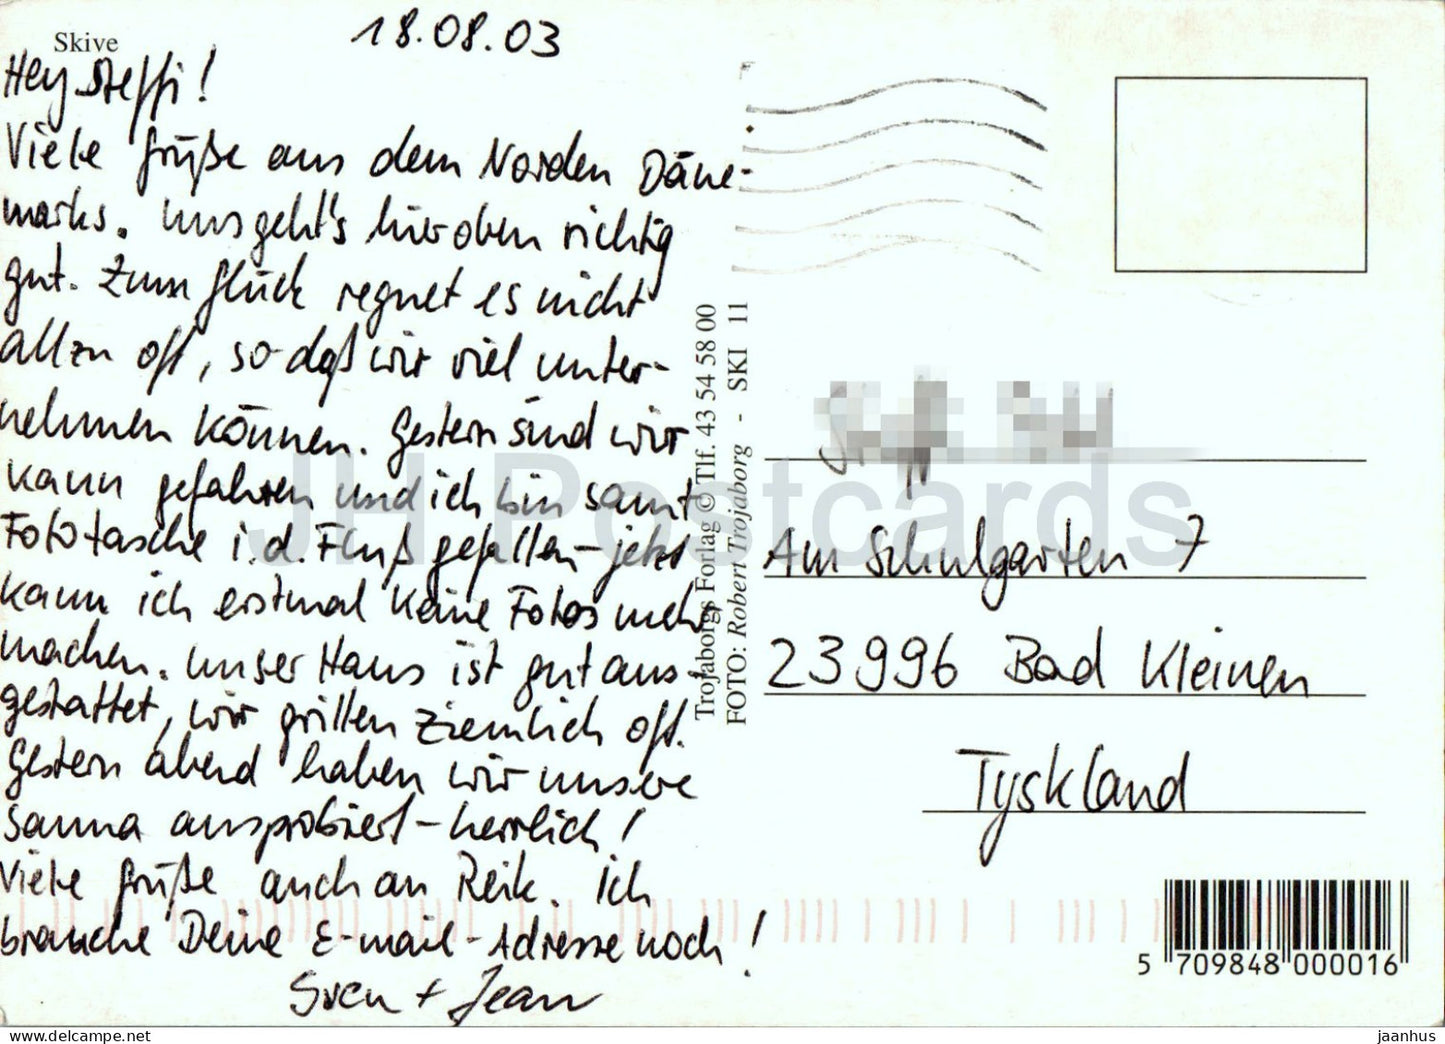 Skive
18.08.03
Hey Steffi!
Viele Grüße aus dem Norden Däne-
marks. Uns geht's hier oben richtig
gut. Zum Glück regnet es nicht
allzu oft, so daß wir viel unter-
nehmen können. Gestern sind wir
Kanu gefahren und ich bin samt
Fototasche i.d. Fluß gefallen – jetzt
kann ich erstmal keine Fotos mehr
machen. Unser Haus ist gut aus-
gestattet, wir grillen ziemlich oft.
Gestern abend haben wir unsere
Sauna ausprobiert – herrlich!
Viele Grüße auch an Reik. Ich
brauche Deine E-mail-Adresse noch!
Sven + Jean
Trojaborgs Forlag © Tlf. 43 54 58 00
FOTO: Robert Trojaborg - SKI 11
Am Schulgarten 7
23996 Bad Kleinen
Tyskland
5 709848 000016
JH Postcards
jaanhus.com